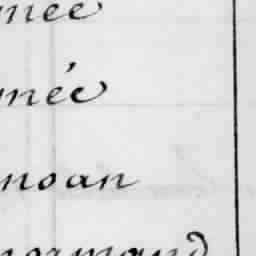 née
née
noan
normand